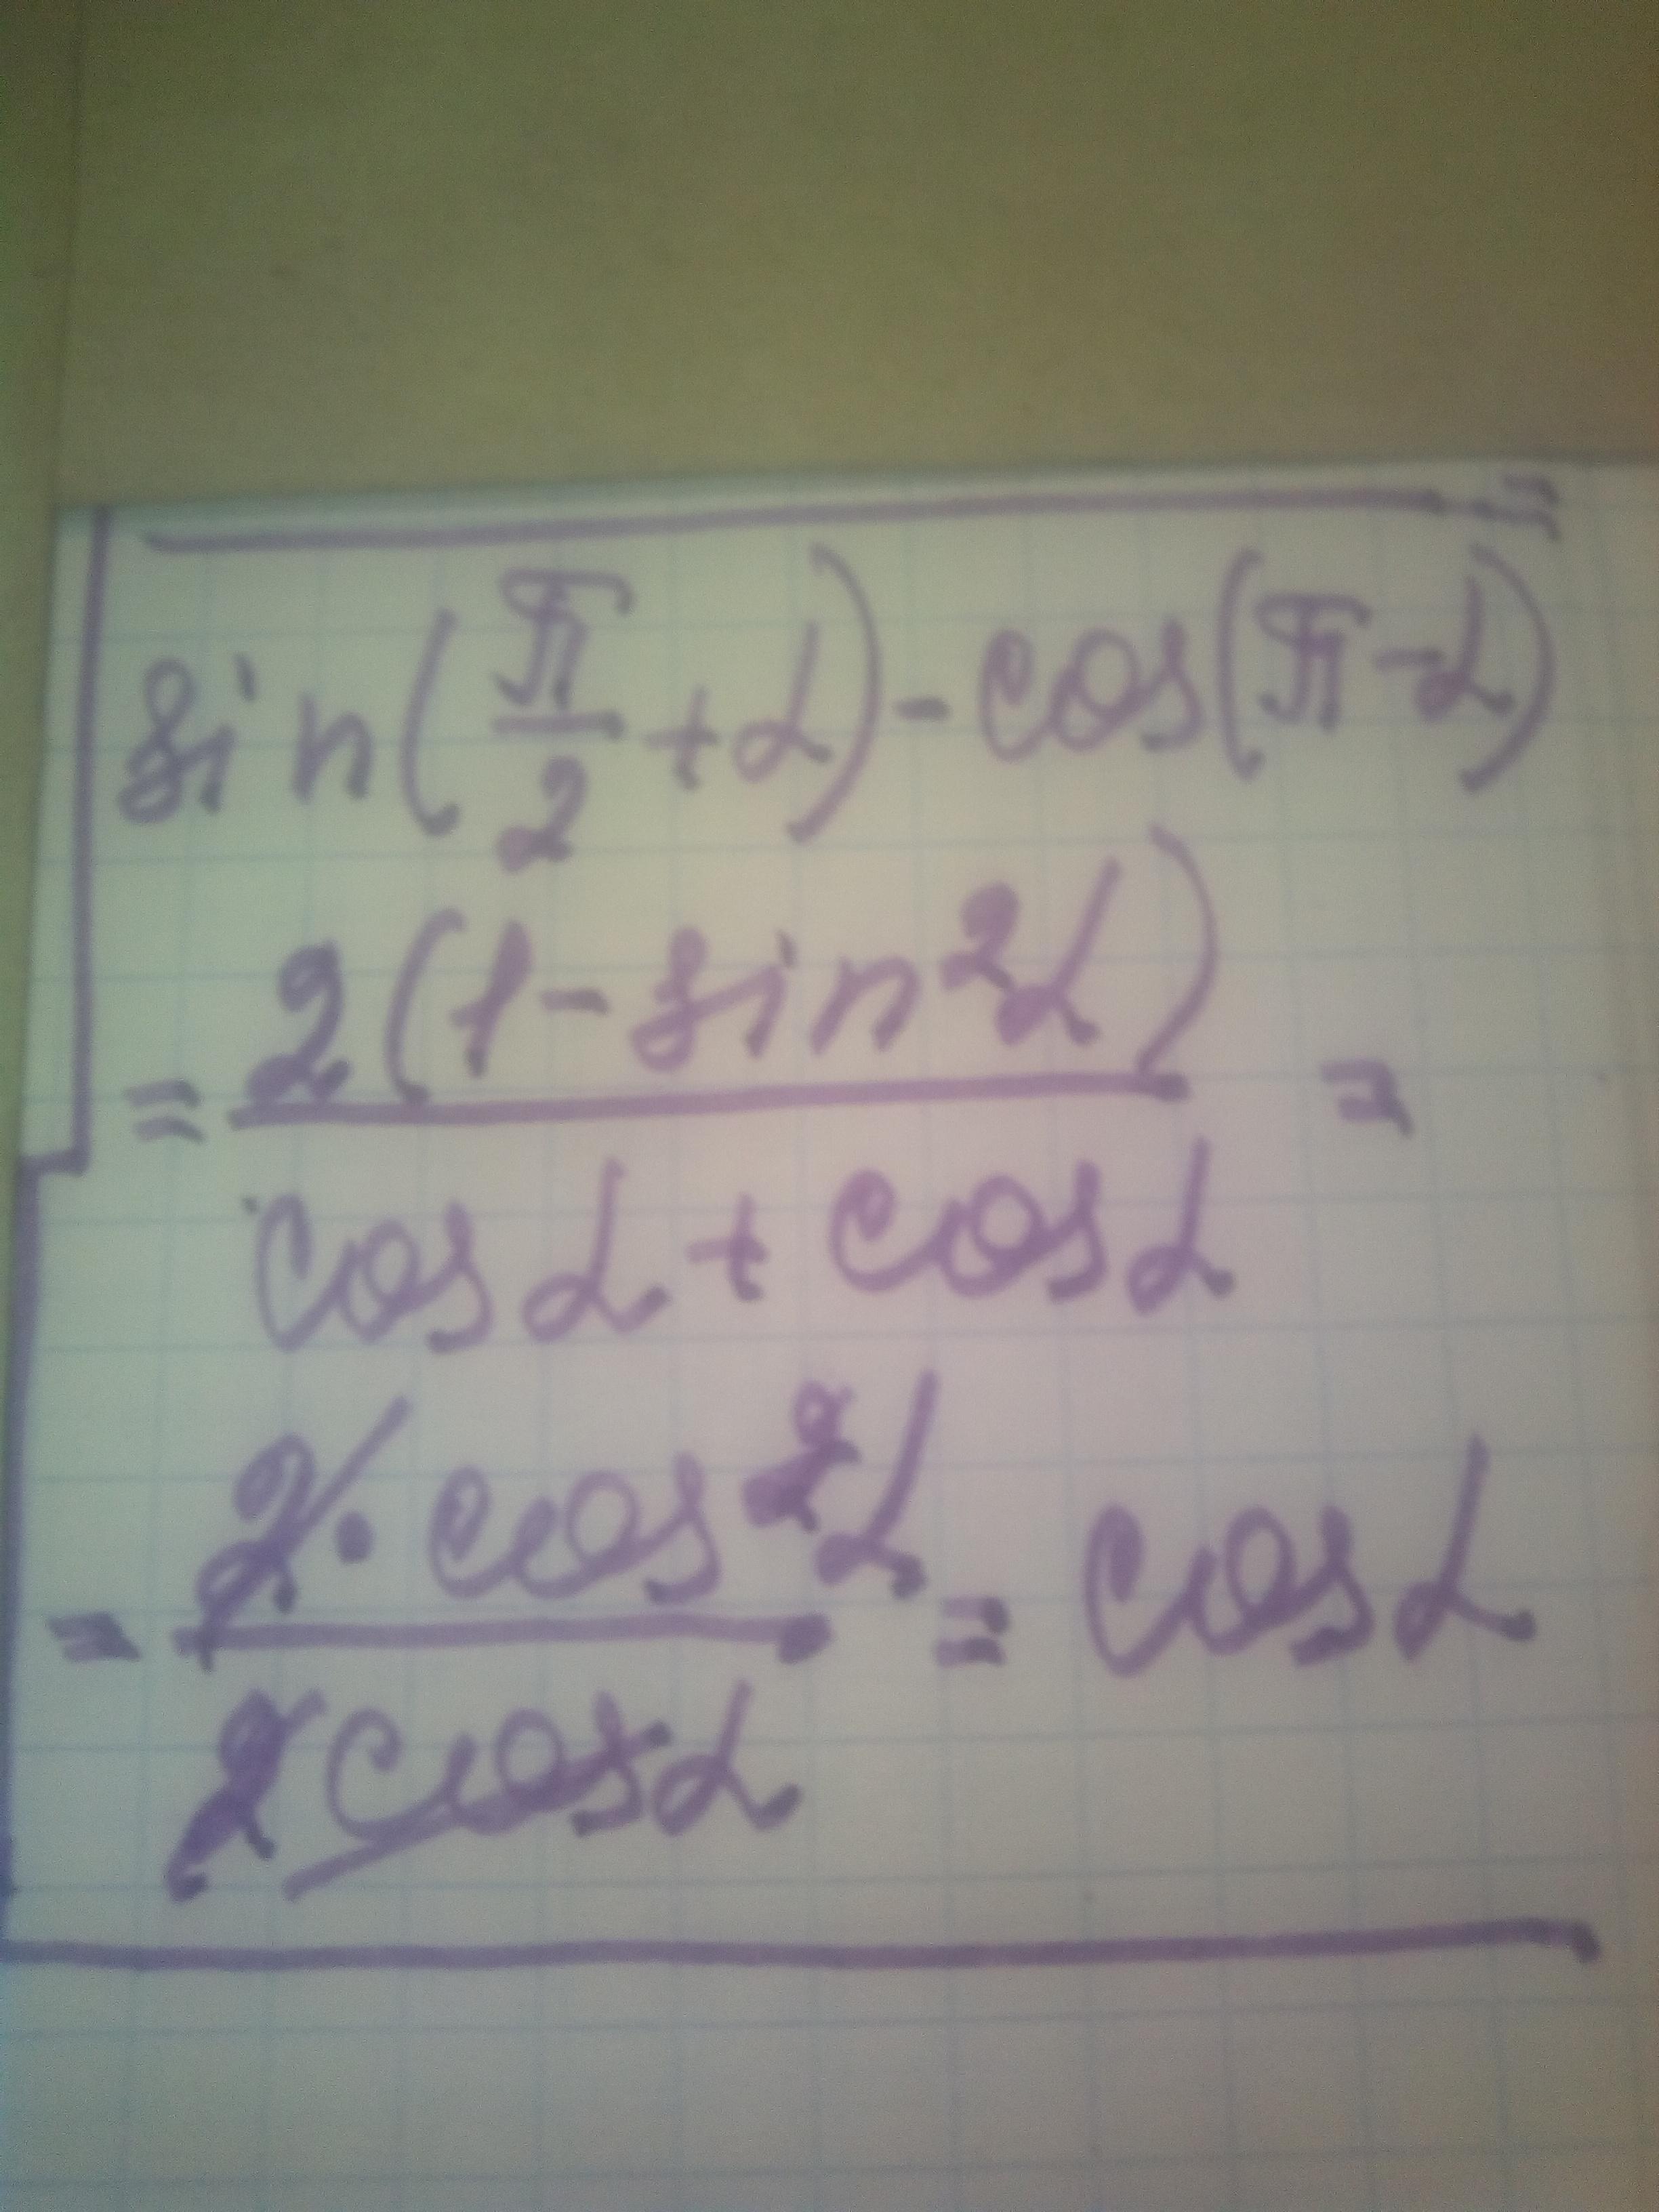 =
sin(π/2 + α) - cos(π - α)
= 2(1 - sin²α) / (cos α + cos α) =
= 2 · cos²α / 2 cos α = cos α